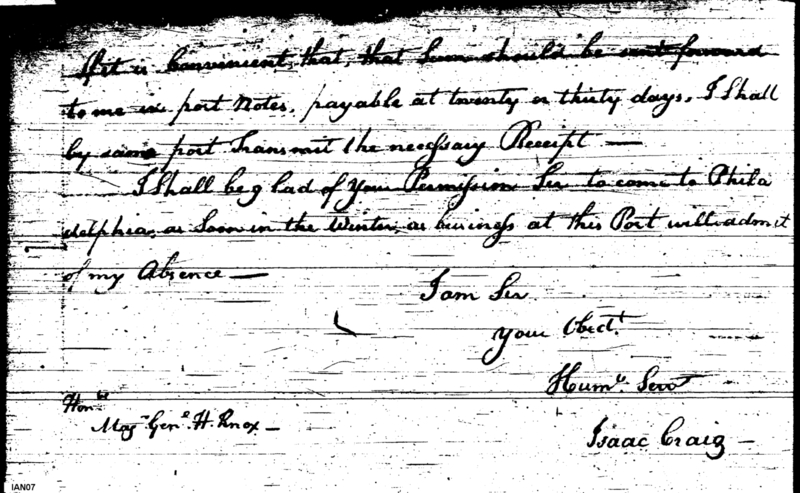 If it is Convinient, that, that Sum should be sent forward
to me in post Notes, payable at twenty or thirty days, I Shall
by same post Transmit the necessary Receipt —
I Shall be glad of your Permission Sir to come to Phila
delphia, as Soon in the Winter, as business at this Post will admit
of my Absence —
I am Sir
your Obedt.
Humle. Servt
Isaac Craig —
Honble
Majr. Genl. H. Knox —
IAN07